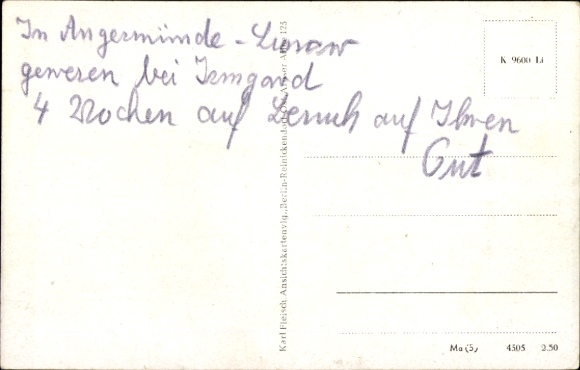 In Angermünde - Lunow
gewesen bei Irmgard
4 Wochen auf Besuch auf Ihren
Gut
K 9600 Li
Karl Fleisch, Ansichtskartenvlg., Berlin-Reinickendorf Ost, Allee 125
Ma (S) 4505 2.50